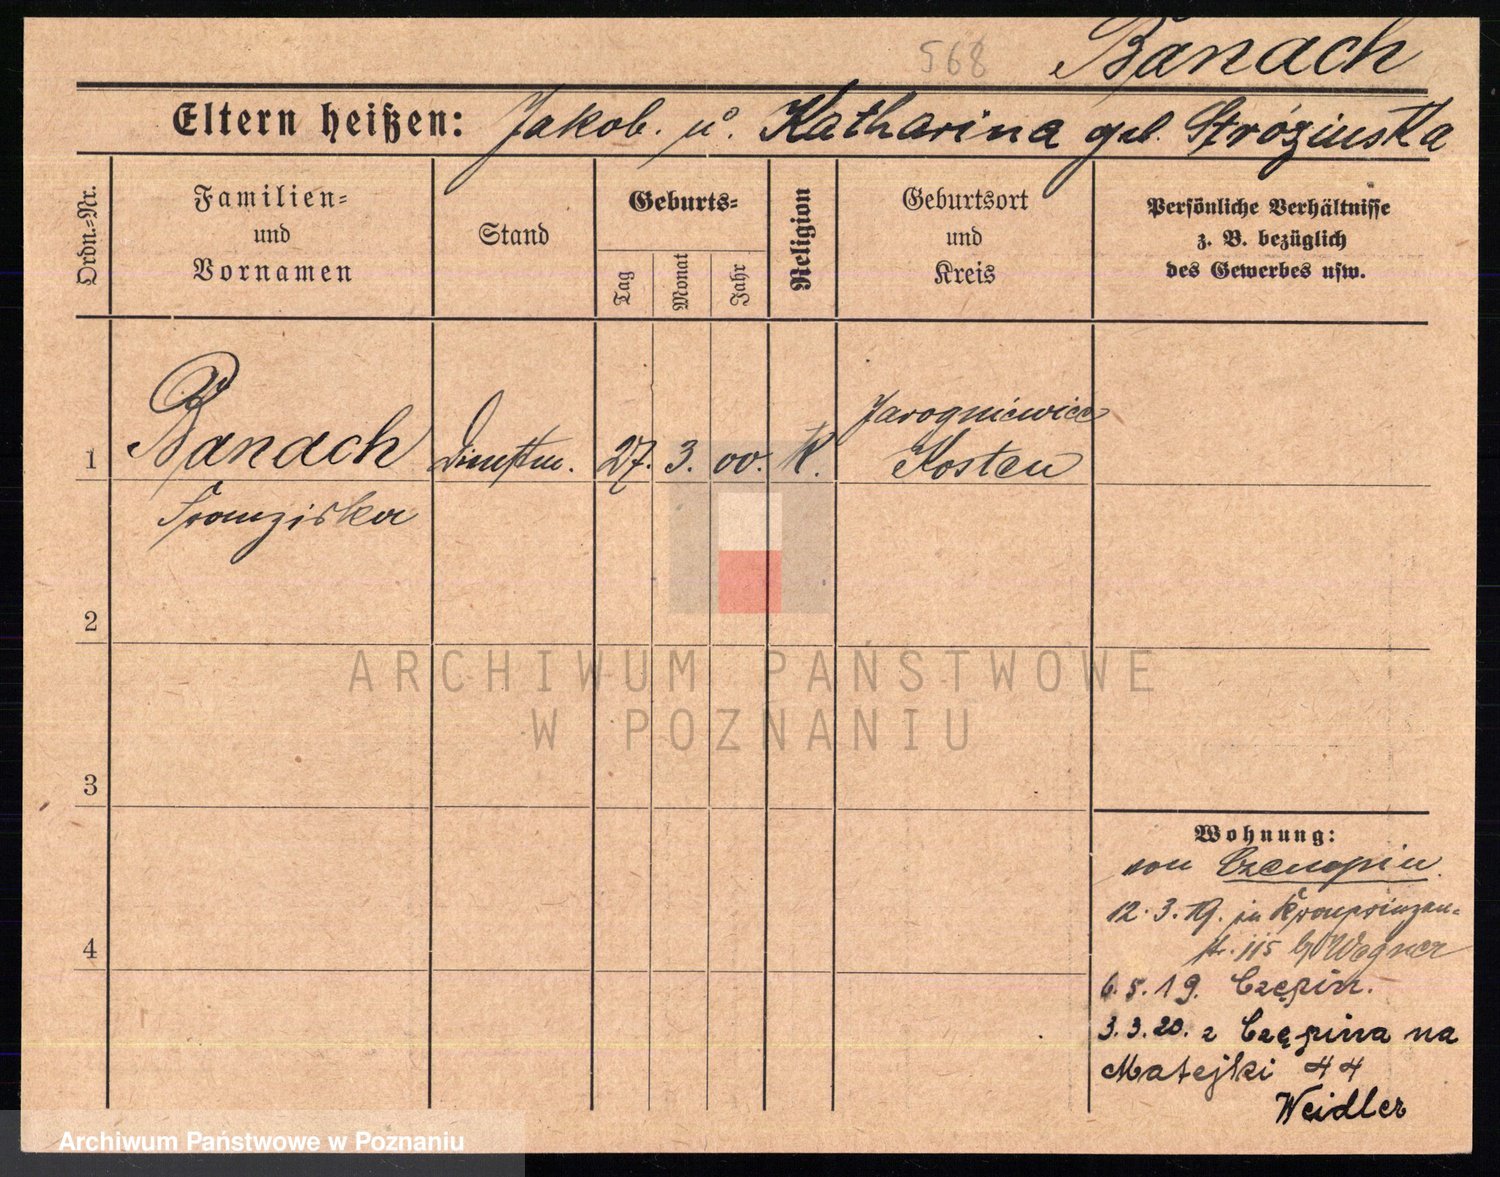 568
Banach
Eltern heißen: Jakob. u. Katharina geb. Strózinska
Ordn.=Nr.
Familien=
und
Vornamen
Stand
Geburts=
Tag
Monat
Jahr
Religion
Geburtsort
und
Kreis
Persönliche Verhältnisse
z. B. bezüglich
des Gewerbes usw.
1 Banach Dienstm. 27. 3. 00. K. Jarogniewice
Kosten
Franziska
2
3
4
Wohnung:
von Czempin.
12.3.19. in Kronprinzen=
str. 115 Wegner
6.5.19. Czępin.
3.3.20. z Czępina na
Matejki 44
Weidler
ARCHIWUM PAŃSTWOWE
W POZNANIU
Archiwum Państwowe w Poznaniu